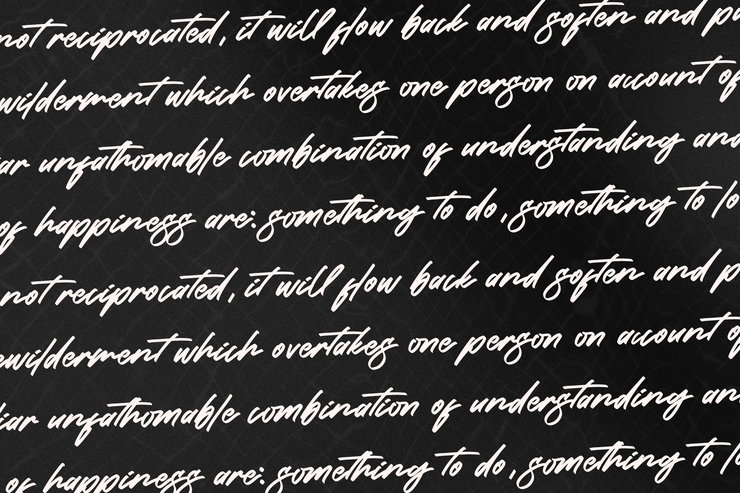 not reciprocated, it will flow back and soften and pu
wilderment which overtakes one person on account of
iar unfathomable combination of understanding and
of happiness are: something to do, something to lo
not reciprocated, it will flow back and soften and p
ewilderment which overtakes one person on account of
liar unfathomable combination of understanding an
of happiness are: something to do, something to l